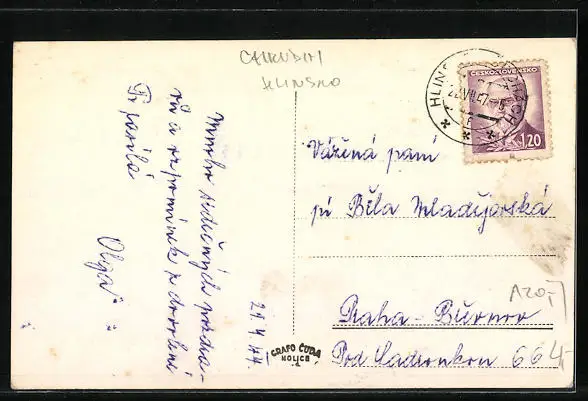 CHRUDIM
HLINSKO
Mnoho srdečných pozdra-
vů a vzpomínek z dovolené
Ti posílá
Olga
21.7.47.
GRAFO ČUDA
HOLICE
ČESKOSLOVENSKO
1,20
HLINSKO V ČECHÁCH
22.VII.47
Vážená paní
pí Běla Mladějovská
Praha - Břevnov
Pod Ladronkou 664
A20,-